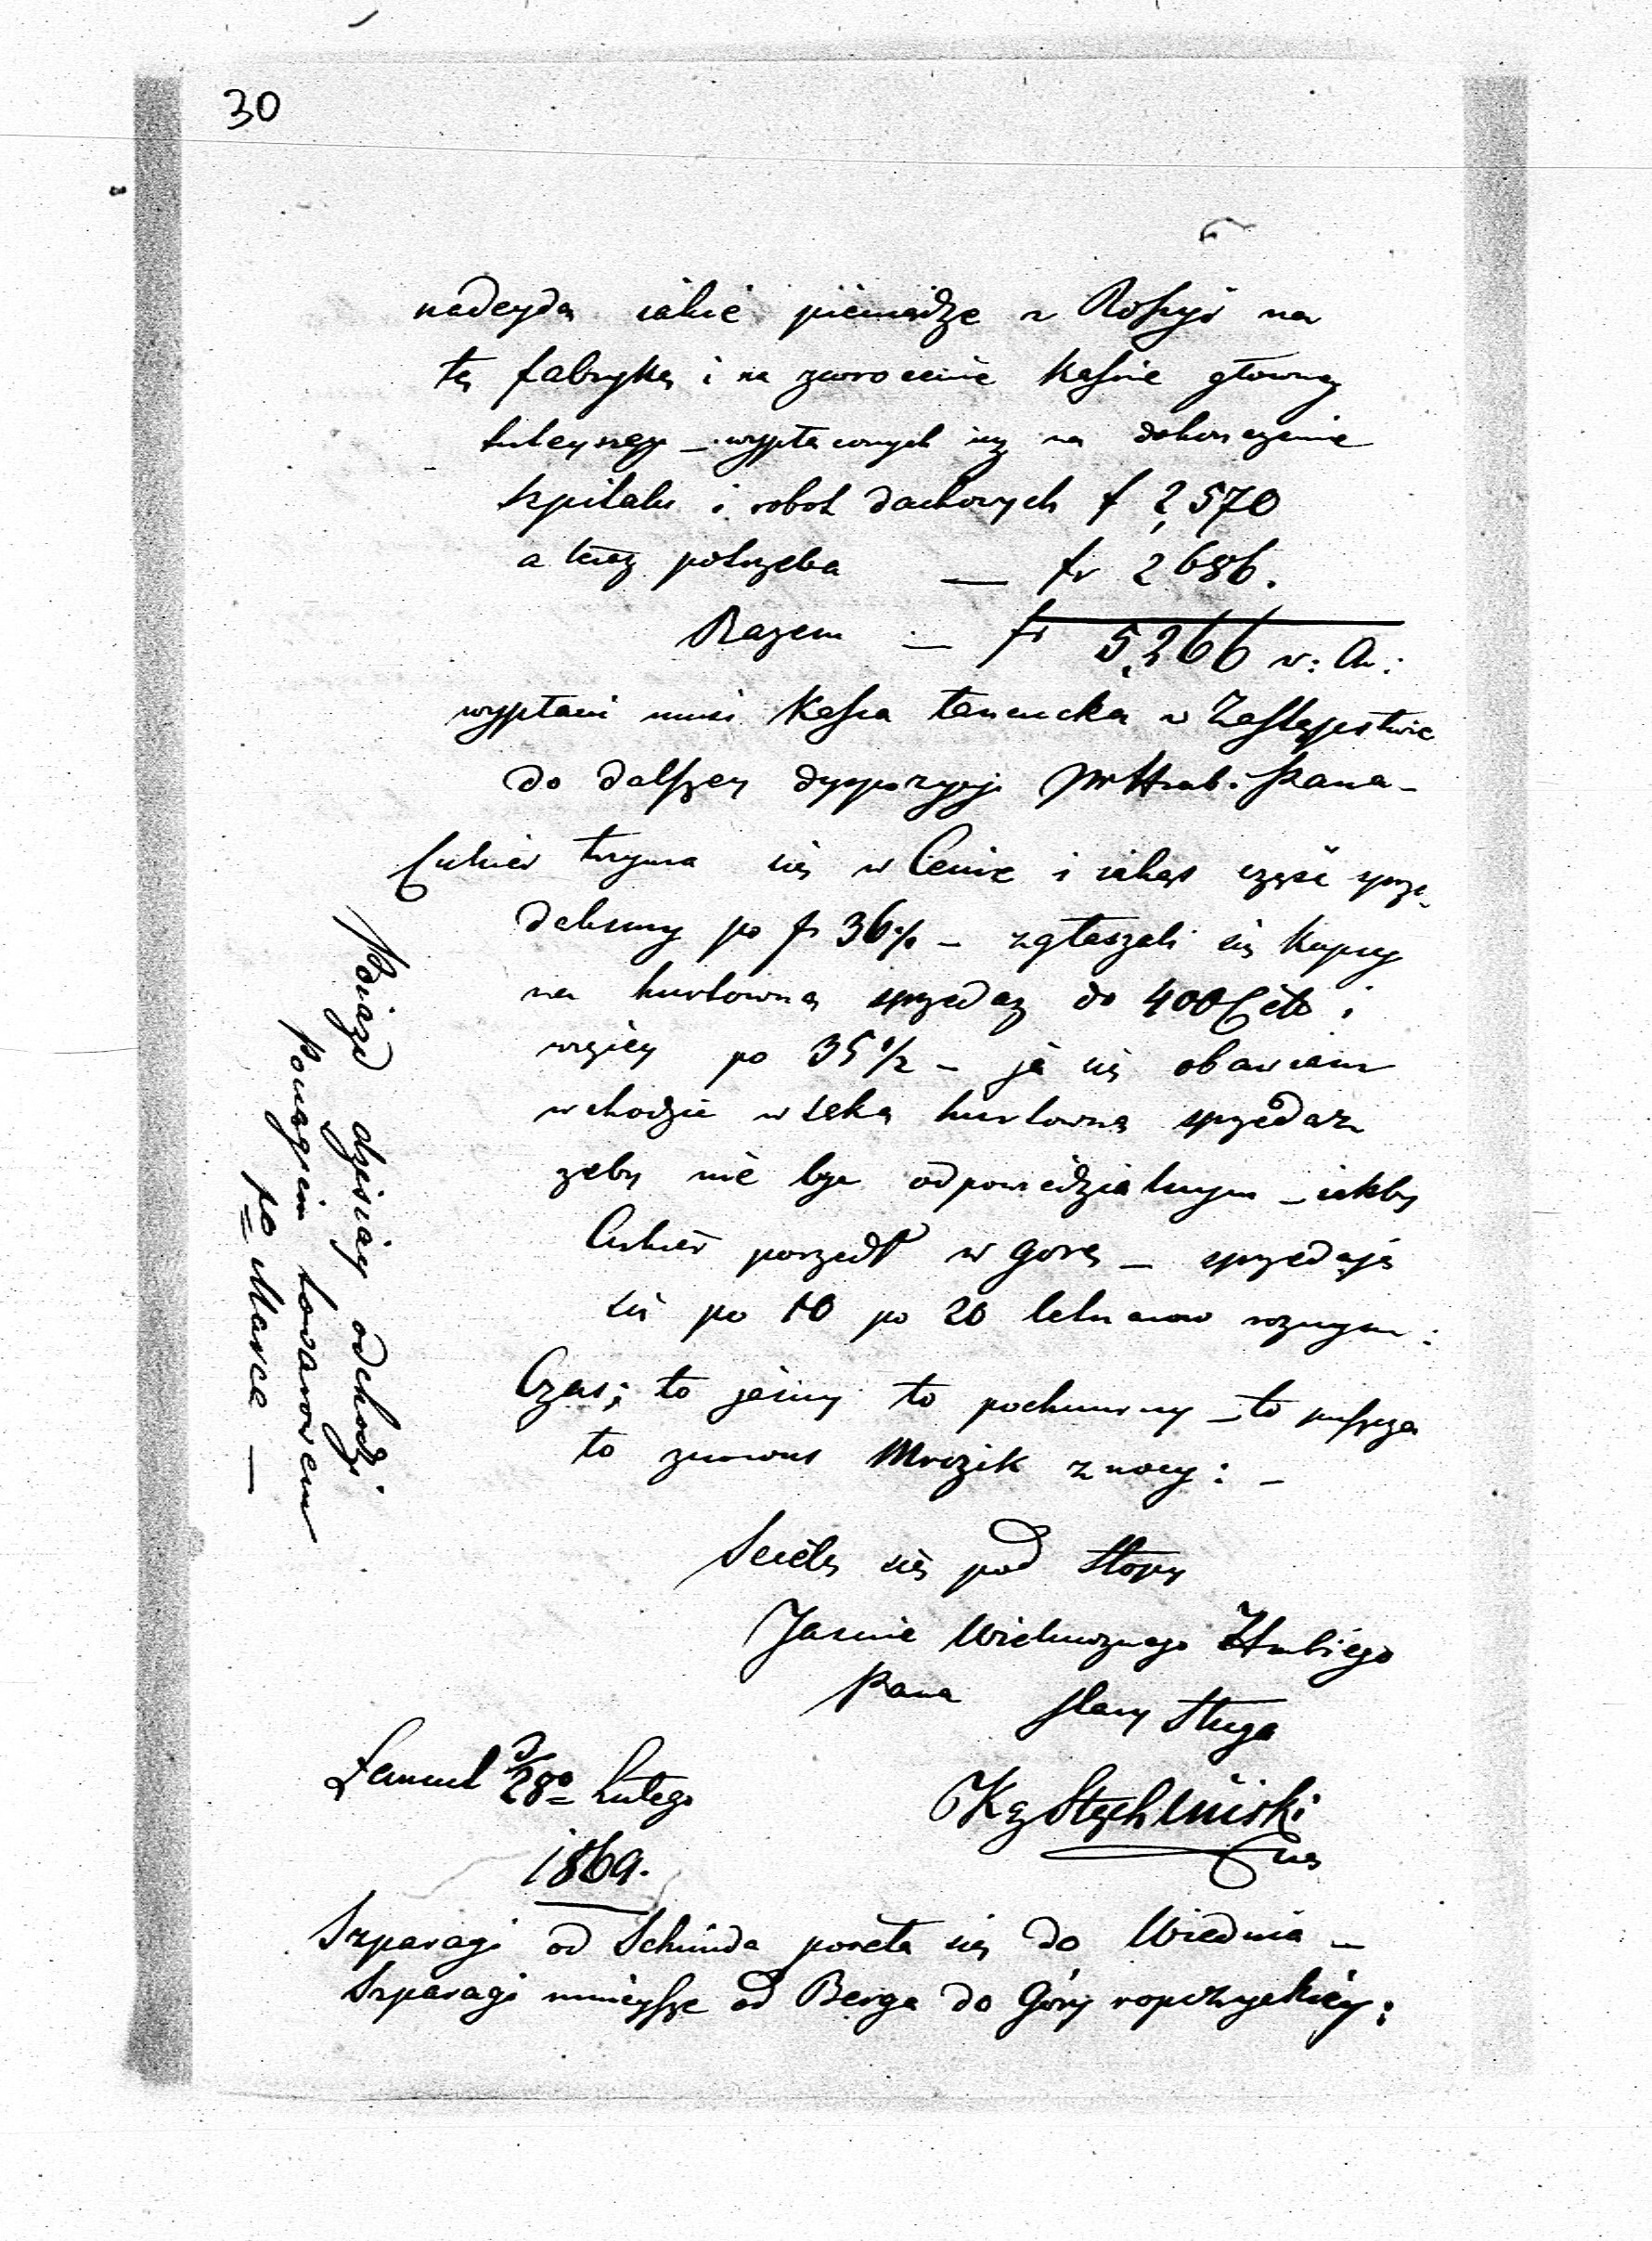 30
nadeydą iakie pieniądze z Rossyi na
tę fabrykę i na zwrocenie kassie głowney
tuteyszey – wypłaconych iuz na dokonczenie
szpitalu i robot dachowych f 2,570
a teraz potrzeba — fr 2686.
Razem — fr 5,266 w: a:
wypłacić musi Kassa łancucka w Zastępstwie
do dalszey dyspozycyi JW Hrab. Pana –
Cukier trzyma się w Cenie i iakąs część sprze
dalismy po fr 36 – zgłaszali się kupcy
na hurtowną sprzedaz do 400 Cet i
więcey po 35 1/2 – ja się obawiam
wchodzić w taką hurtowną sprzedaz
zeby nie byc odpowiedzialnym – iakby
Cukier poszedł w gorę – sprzedaje
się po 10 po 20 Cetnarow roznym:
Czas; to jasny to pochmurny – to puszcza
to znowus Mrozik z nocy: –
Scielę się pod Stopy
Jasnie Wielmoznego Hrabiego
Pana stary Sługa
Łancut d 28o Lutego
1869.
Szparagi od Schinda poseła się do Wiednia –
Szparagi mnieysze od Berga do Góry ropczyckiéy:
dzisiay odchodzi
Pociągiem towarowem
po Marca —